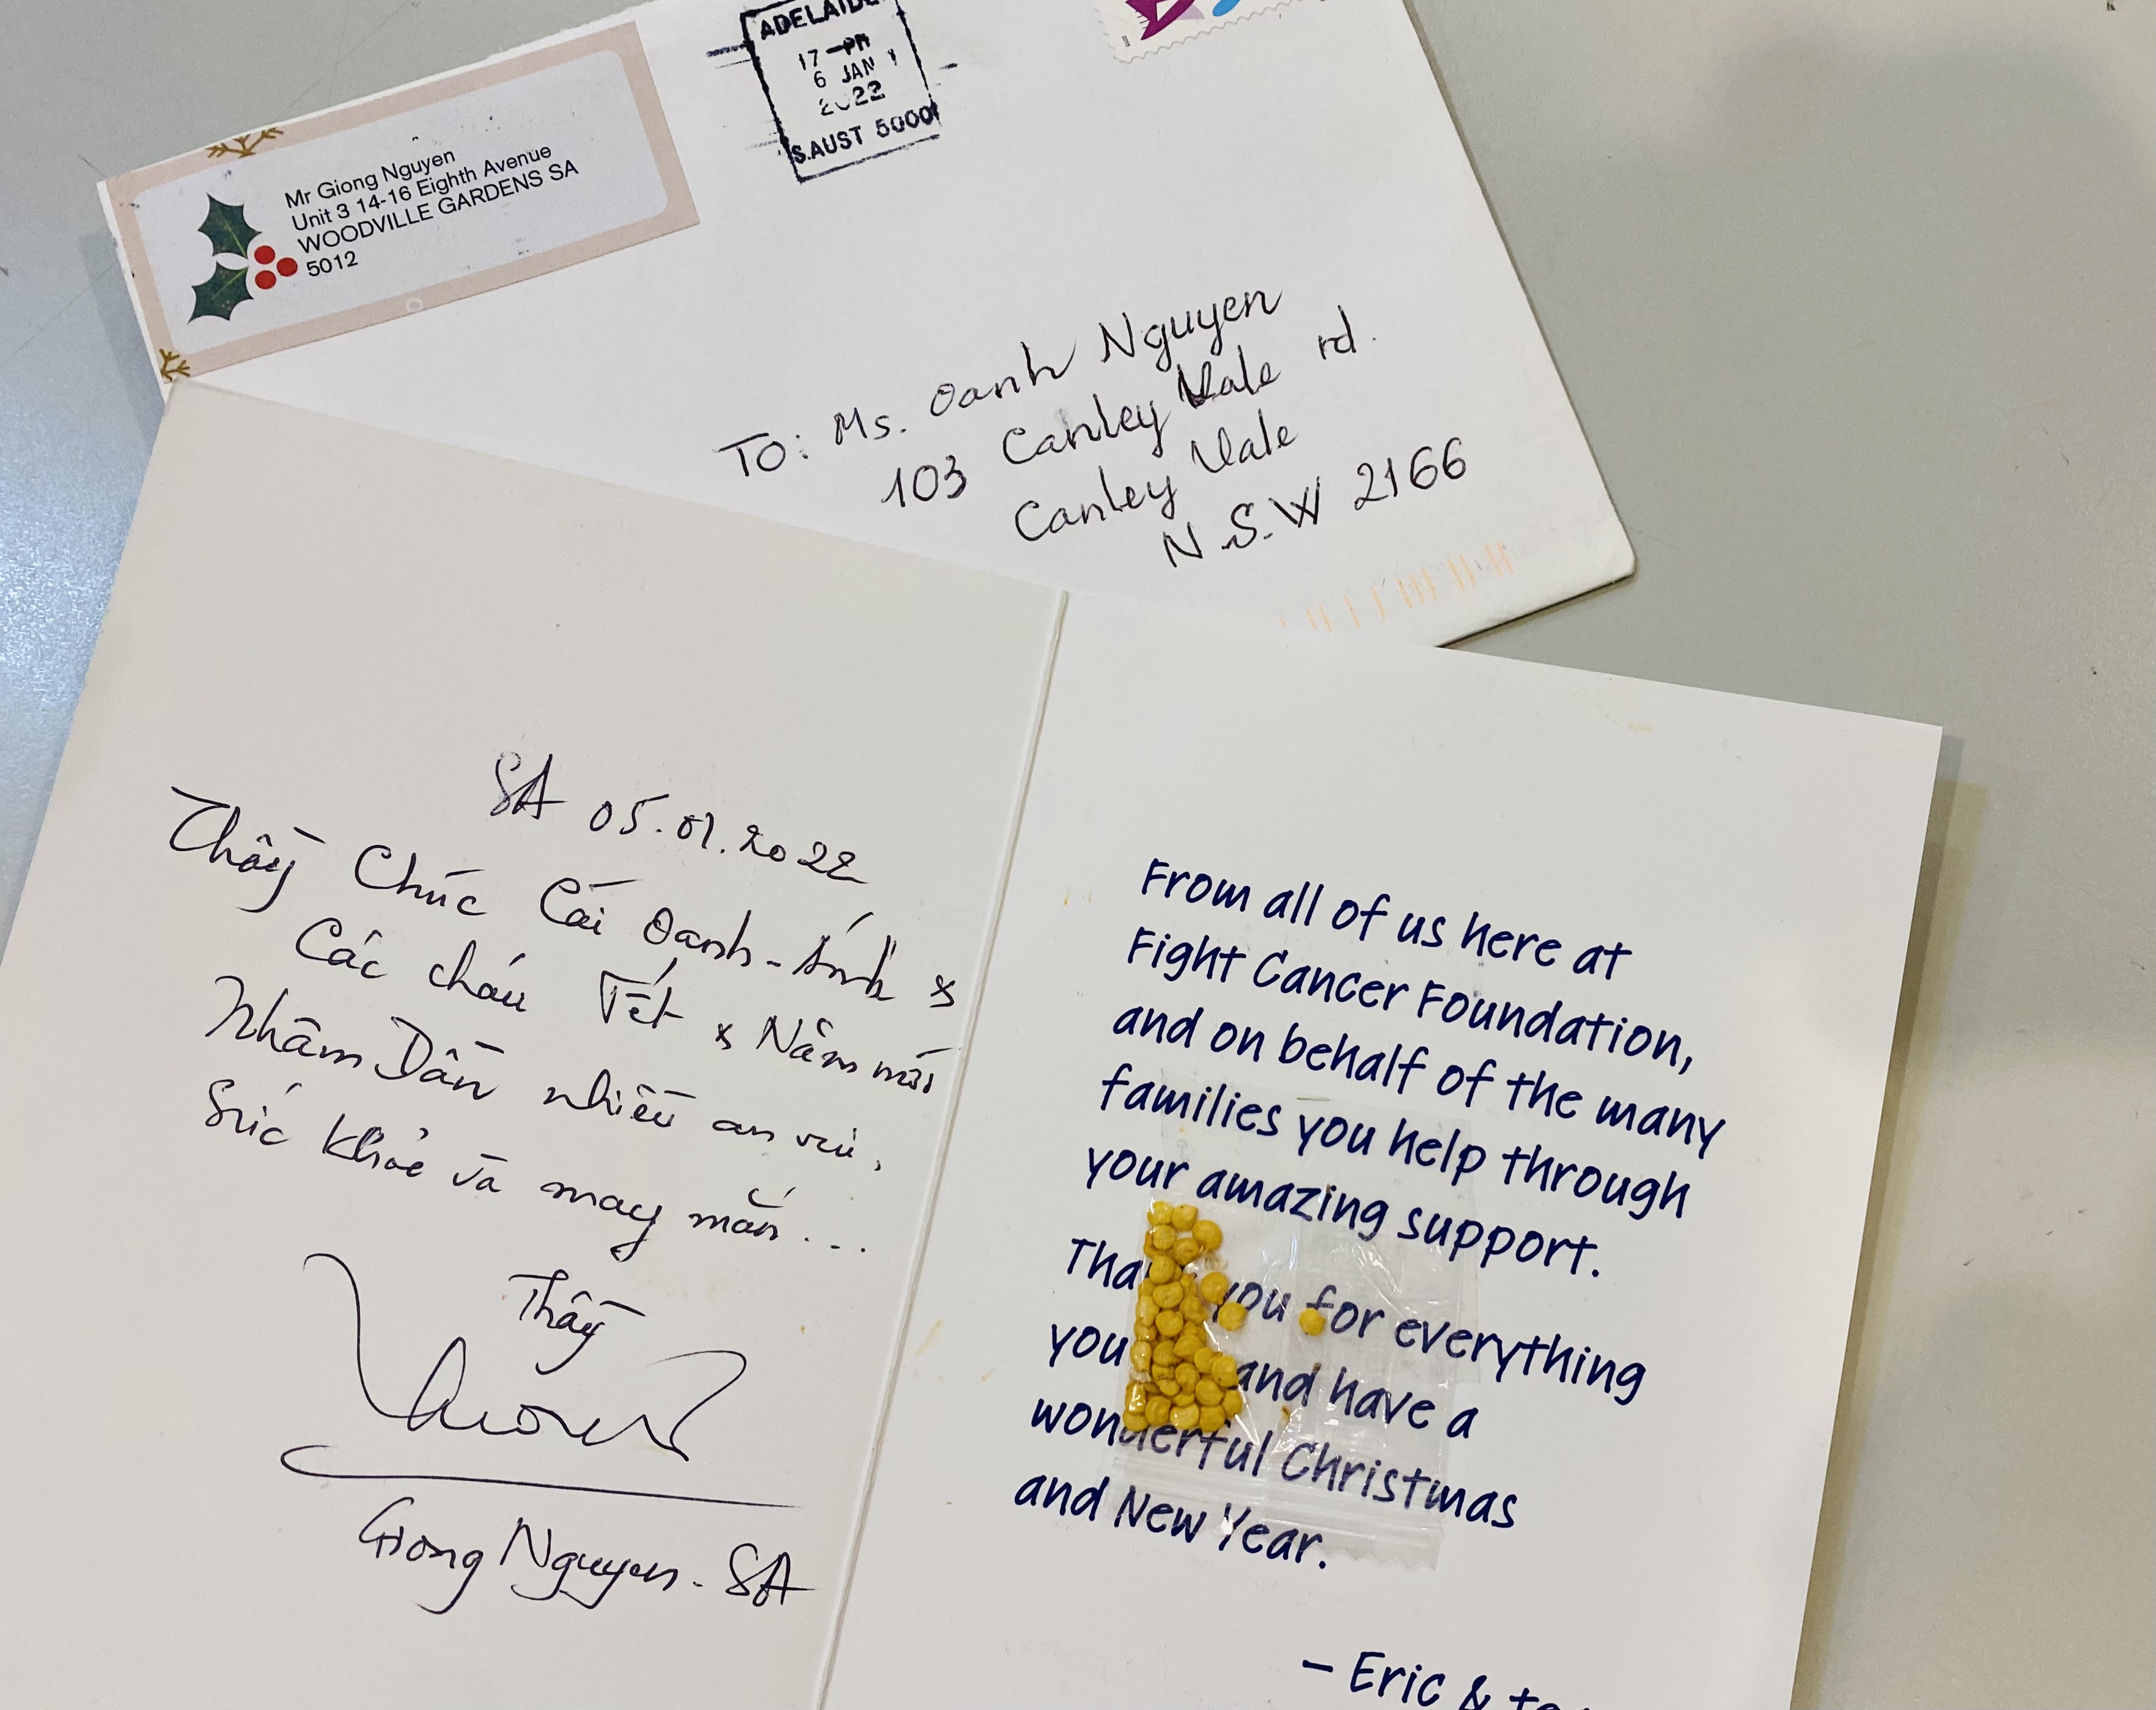 ADELAIDE
17-PM
6 JAN
2022
S.AUST 5000
Mr Giong Nguyen
Unit 3 14-16 Eighth Avenue
WOODVILLE GARDENS SA
5012
TO: Ms. Oanh Nguyen
103 Canley Vale rd.
Canley Vale
N.S.W 2166
SA 05.01.2022
Thầy Chúc Cái Oanh-Ánh &
Các cháu Tết & Năm mới
Nhâm Dần nhiều an vui,
Sức khỏe và may mắn...
Thầy
Giong Nguyen - SA
From all of us here at
Fight Cancer Foundation,
and on behalf of the many
families you help through
your amazing support.
you for everything
you and have a
wonderful Christmas
and New Year.
– Eric &